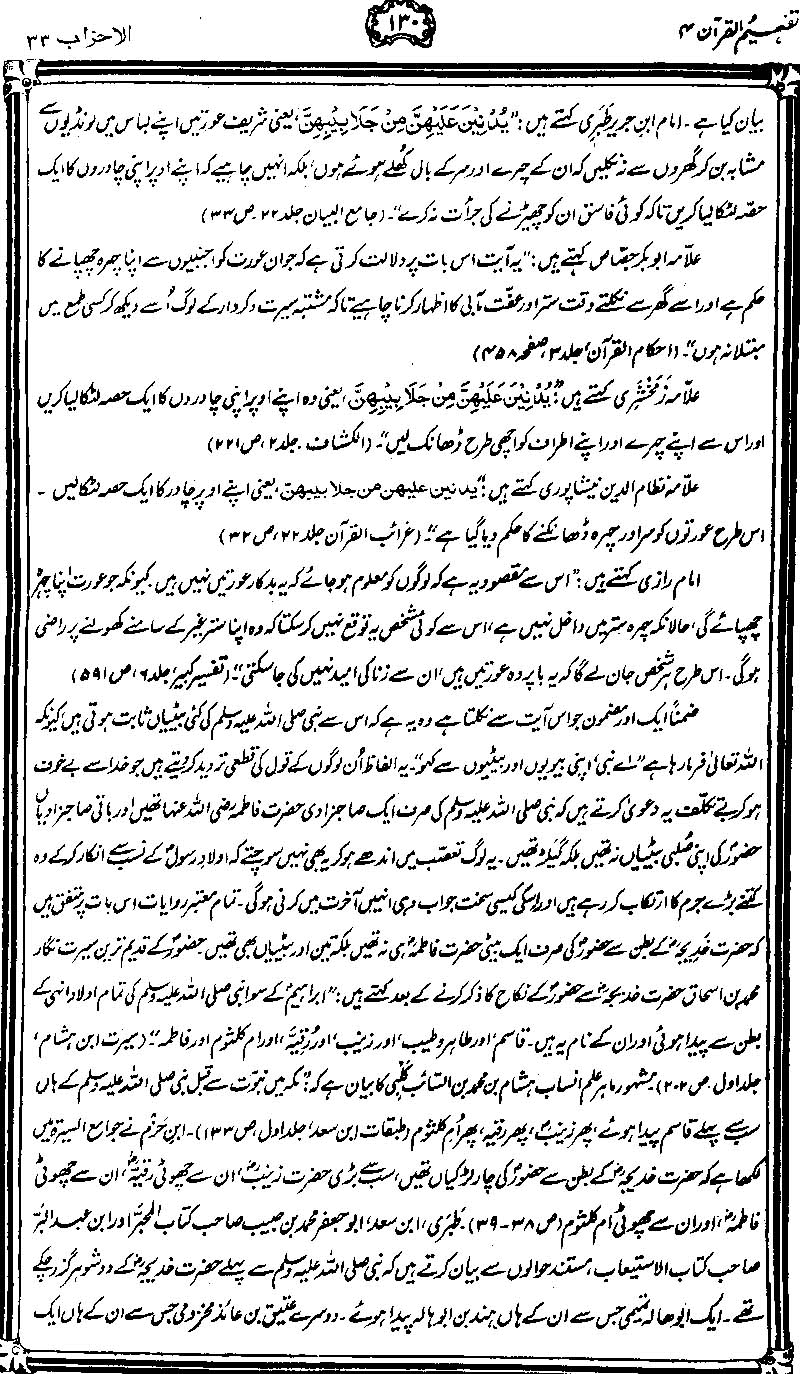 تفہیم القرآن ۴
۱۳۰
الاحزاب ۳۳
بیان کیا ہے۔ امام ابن جریر طَبَری کہتے ہیں: ”یُدْنِیْنَ عَلَیْھِنَّ مِنْ جَلَابِیْبِھِنَّ، یعنی شریف عورتیں اپنے لباس میں لونڈیوں سے
مشابہ بن کر گھروں سے نہ نکلیں کہ ان کے چہرے اور سر کے بال کھُلے ہوئے ہوں، بلکہ انہیں چاہیے کہ اپنے اوپر اپنی چادروں کا ایک
حصہ لٹکا لیا کریں تاکہ کوئی فاسق ان کو چھیڑنے کی جرأت نہ کرے“۔ (جامع البیان جلد ۲۲۔ ص ۳۳)
علّامہ ابوبکر جصّاص کہتے ہیں: ”یہ آیت اس بات پر دلالت کرتی ہے کہ جوان عورت کو اجنبیوں سے اپنا چہرہ چھپانے کا
حکم ہے اور اسے گھر سے نکلتے وقت ستر اور عفّت مآبی کا اظہار کرنا چاہیے تاکہ مشتبہ سیرت و کردار کے لوگ اُسے دیکھ کر کسی طمع میں
مبتلا نہ ہوں“۔ (احکام القرآن، جلد ۳، صفحہ ۴۵۸)
علّامہ زَمَخْشَری کہتے ہیں: ”یُدْنِیْنَ عَلَیْھِنَّ مِنْ جَلَابِیْبِھِنَّ، یعنی وہ اپنے اوپر اپنی چادروں کا ایک حصہ لٹکا لیا کریں
اور اس سے اپنے چہرے اور اپنے اطراف کو اچھی طرح ڈھانک لیں“۔ (الکشاف۔ جلد ۲، ص ۲۲۱)
علّامہ نظام الدین نیشاپوری کہتے ہیں: ”یدنین علیھن من جلابیبھن، یعنی اپنے اوپر چادر کا ایک حصہ لٹکا لیں۔
اس طرح عورتوں کو سر اور چہرہ ڈھانکنے کا حکم دیا گیا ہے“۔ (غرائب القرآن جلد ۲۲، ص ۳۲)
امام رازی کہتے ہیں: ”اس سے مقصود یہ ہے کہ لوگوں کو معلوم ہو جائے کہ یہ بدکار عورتیں نہیں ہیں۔ کیونکہ جو عورت اپنا چہرہ
چھپائے گی، حالانکہ چہرہ ستر میں داخل نہیں ہے، اس سے کوئی شخص یہ توقع نہیں کر سکتا کہ وہ اپنا ستر غیر کے سامنے کھولنے پر راضی
ہوگی۔ اس طرح ہر شخص جان لے گا کہ یہ باپردہ عورتیں ہیں، ان سے زنا کی امید نہیں کی جا سکتی“۔ (تفسیر کبیر، جلد ۶، ص ۵۹۱)
ضمناً ایک اور مضمون جو اس آیت سے نکلتا ہے وہ یہ ہے کہ اس سے نبی صلی اللہ علیہ وسلم کی کئی بیٹیاں ثابت ہوتی ہیں، کیونکہ
اللہ تعالیٰ فرما رہا ہے ”اے نبی، اپنی بیویوں اور بیٹیوں سے کہو“۔ یہ الفاظ اُن لوگوں کے قول کی قطعی تردید کر دیتے ہیں جو خدا سے بے خوف
ہو کر بے تکلّف یہ دعویٰ کرتے ہیں کہ نبی صلی اللہ علیہ وسلم کی صرف ایک صاحبزادی حضرت فاطمہ رضی اللہ عنہا تھیں اور باقی صاحبزادیاں
حضورؐ کی اپنی صُلبی بیٹیاں نہ تھیں بلکہ گَیلڑ تھیں۔ یہ لوگ تعصّب میں اندھے ہو کر یہ بھی نہیں سوچتے کہ اولادِ رسولؐ کے نسب سے انکار کر کے وہ
کتنے بڑے جرم کا ارتکاب کر رہے ہیں اور اسکی کیسی سخت جواب دہی انہیں آخرت میں کرنی ہوگی۔ تمام معتبر روایات اس بات پر متفق ہیں
کہ حضرت خدیجہؓ کے بطن سے حضورؐ کی صرف ایک بیٹی حضرت فاطمہؓ ہی نہ تھیں بلکہ تین اور بیٹیاں بھی تھیں۔ حضورؐ کے قدیم ترین سیرت نگار
محمد بن اسحاق حضرت خدیجہؓ سے حضورؐ کے نکاح کا ذکر کرنے کے بعد کہتے ہیں: ”ابراہیمؓ کے سوا نبی صلی اللہ علیہ وسلم کی تمام اولاد انہی کے
بطن سے پیدا ہوئی اور ان کے نام یہ ہیں۔ قاسم، اور طاہر و طیب، اور زینب، اور رُقیَّہ، اور ام کلثوم اور فاطمہ“۔ (سیرت ابن ہشام،
جلد اول۔ ص ۲۰۲) مشہور ماہر علم انساب ہشام بن محمد بن السّائب کلبی کا بیان ہے کہ: ”مکہ میں نبوّت سے قبل نبی صلی اللہ علیہ وسلم کے ہاں
سب سے پہلے قاسم پیدا ہوئے، پھر زینبؓ، پھر رقیہ، پھر اُم کلثوم (طبقات ابن سعد، جلد اول، ص ۱۳۳)۔ ابن حَزْم نے جوامع السیرۃ میں
لکھا ہے کہ حضرت خدیجہؓ کے بطن سے حضورؐ کی چار لڑکیاں تھیں، سب سے بڑی حضرت زینبؓ، ان سے چھوٹی رقیہؓ، ان سے چھوٹی
فاطمہؓ، اور ان سے چھوٹی اُم کلثومؓ (ص ۳۸-۳۹)۔ طَبَرَی، ابن سعد، ابو جعفر محمد بن حبیب صاحب کتاب المُحبَّر اور ابن عبد البرّ
صاحب کتاب الاستیعاب، مستند حوالوں سے بیان کرتے ہیں کہ نبی صلی اللہ علیہ وسلم سے پہلے حضرت خدیجہؓ کے دو شوہر گزر چکے
تھے۔ ایک ابو ہالہ تمیمی جس سے ان کے ہاں ہند بن ابو ہالہ پیدا ہوئے۔ دوسرے عتیق بن عائذ مخزومی جس سے ان کے ہاں ایک